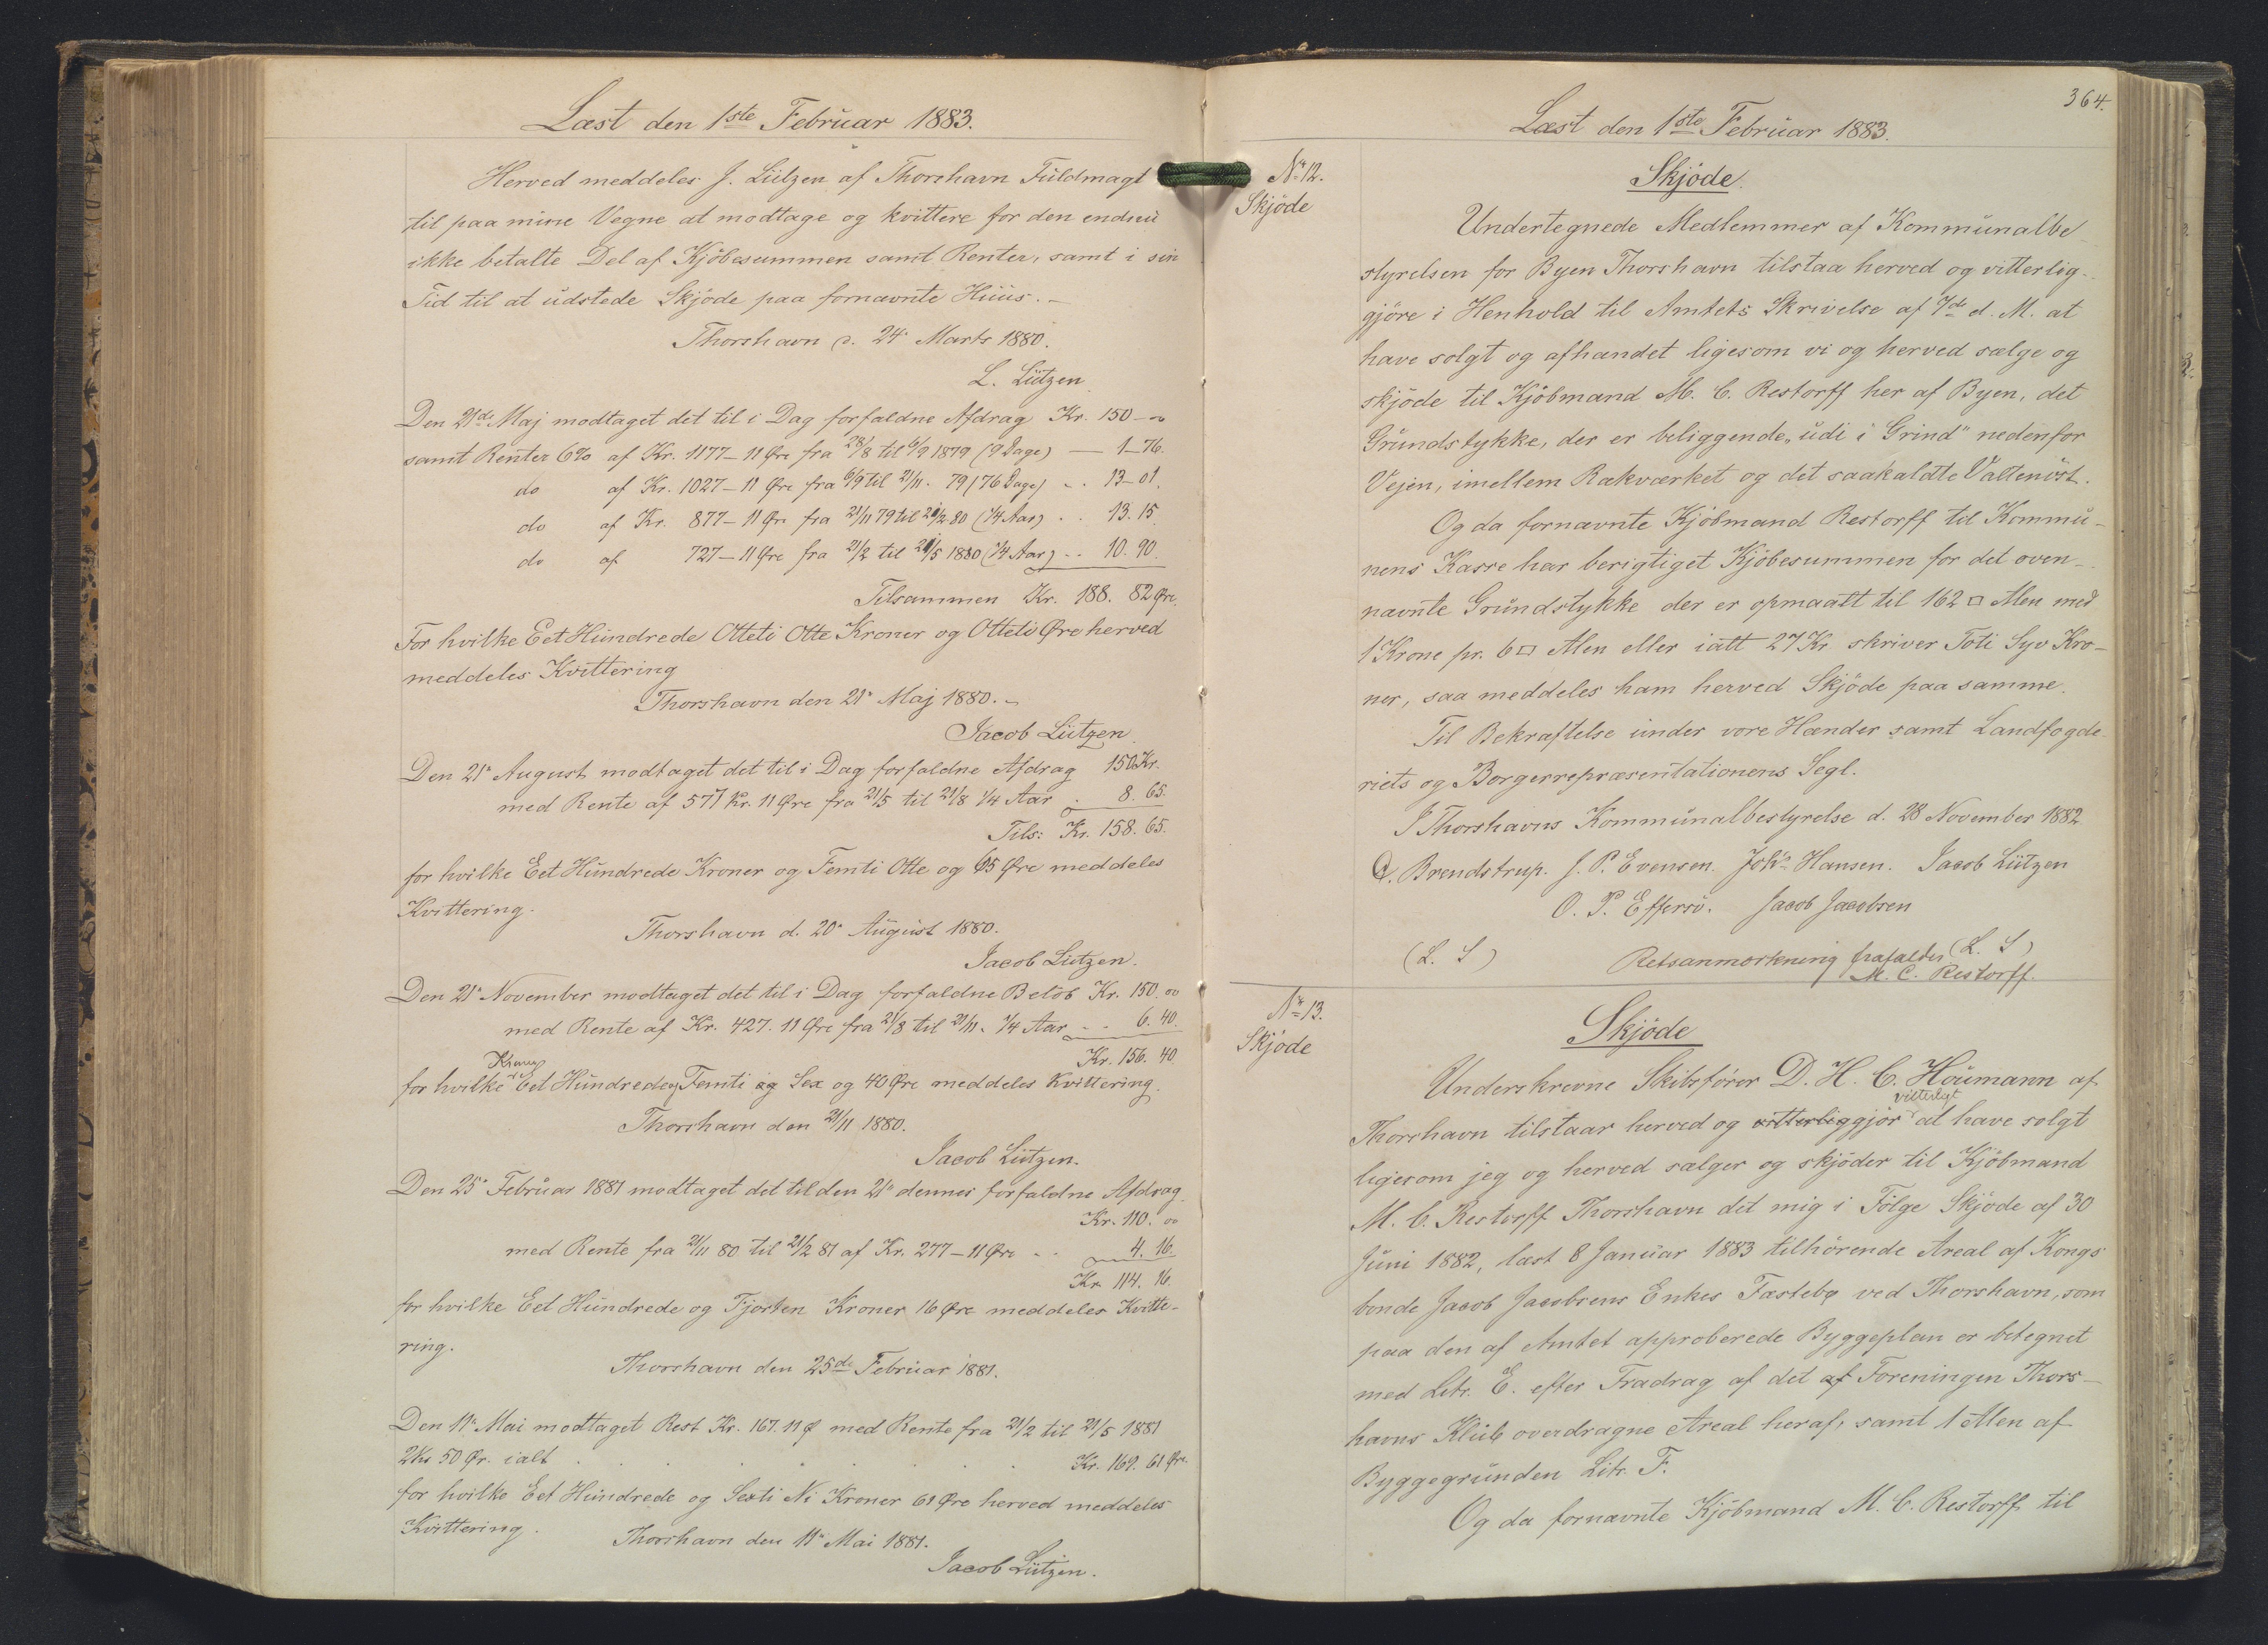 Læst den 1ste Februar 1883.
Herved meddeles J. Lützen af Thorshavn Fuldmagt
til paa mine Vegne at modtage og kvittere for den endnu
ikke betalte Del af Kjöbesummen samt Renter, samt i sin
Tid til at udstede Skjøde paa fornævnte Huus.-
Thorshavn d. 24' Marts 1880.
L. Lützen
Den 21de Maj modtaget det til i Dag forfaldne Afdrag Kr. 150-
samt Renter 6% af Kr. 1177-11 Øre fra 28/8 til 6/9 1879 (9 Dage) - 1-76.
do af Kr. 1027-11 Øre fra 6/9 til 21/11. 79 (76 Dage) .. 13-01.
do af Kr. 877-11 Øre fra 21/11 79 til 21/2 80 (1/4 Aar) .. 13.15
do af 727-11 Øre fra 21/2 til 21/5 1880 (1/4 Aar) .. 10.90
Tilsammen Kr. 188. 82 Øre.
For hvilke Eet Hundrede Otteti Otte Kroner og Otteti Øre herved
meddeles Kvittering
Thorshavn den 21' Maj 1880.-
Jacob Lützen
Den 21' August modtaget det til i Dag forfaldne Afdrag 150 Kr.
med Rente af 577 Kr. 11 Øre fra 21/5 til 21/8 1/4 Aar . 8. 65.
Tils: Kr. 158. 65.
for hvilke Eet Hundrede Kroner og Femti Otte og 65 Øre meddeles
Kvittering.
Thorshavn d. 20' August 1880.
Jacob Lützen.
Den 21' November modtaget det til i Dag forfaldne Beløb Kr. 150. 00
med Rente af Kr. 427. 11 Øre fra 21/8 til 21/11. 1/4 Aar - - 6. 40.
Kr. 156. 40
for hvilke Eet Hundrede og Femti og Sex og 40 Øre meddeles Kvittering.
Thorshavn den 21/11 1880.
Jacob Lützen.
Den 25' Februar 1881 modtaget det til den 21' dennes forfaldne Afdrag
Kr. 110. 00
med Rente fra 21/11 80 til 21/2 81 af Kr. 277-11 Øre - . 4. 16.
Kr. 114. 16.
for hvilke Eet Hundrede og Fjorten Kroner 16 Øre meddeles Kvitte-
ring.
Thorshavn den 25de Februar 1881.
Den 11' Mai modtaget Rest Kr. 167. 11 Ø med Rente fra 21/2 til 21/5 1881
2 Kr 50 Ør. ialt . . . . . . . Kr. 169. 61 Øre.
for hvilke Eet Hundrede og Sexti Ni Kroner 61 Øre herved meddeles
Kvittering.
Thorshavn den 11' Mai 1881.
Jacob Lützen.
364.
Læst den 1ste Februar 1883.
No 12.
Skjøde
Skjøde.
Undertegnede Medlemmer af Kommunalbe-
styrelsen for Byen Thorshavn tilstaa herved og vitterlig-
gjöre i Henhold til Amtets Skrivelse af 7de d. M. at
have solgt og afhændet ligesom vi og herved sælge og
skjöde til Kjöbmand M. C. Restorff her af Byen, det
Grundstykke, der er beliggende „udi i Grind" nedenfor
Vejen, imellem Rækværket og det saakaldte Valtenöst.
Og da fornævnte Kjöbmand Restorff til Kommu-
nens Kasse har berigtiget Kjöbesummen for det oven-
nævnte Grundstykke der er opmaalt til 162 □ Alen med
1 Krone pr. 6 □ Alen eller ialt 27 Kr skriver Toti Syv Kro-
ner, saa meddeles ham herved Skjöde paa samme.
Til Bekræftelse under vore Hænder samt Landfogde-
riets og Borgerrepræsentationens Segl.
I Thorshavns Kommunalbestyrelse d. 28 November 1882
C. Brendstrup. J. P. Evensen. Johs Hansen. Jacob Lützen
O. P. Effersö. Jacob Jacobsen
(L. S) Retsanmærkning frafaldes (L. S)
M. C. Restorff.
No 13.
Skjøde
Skjøde
Underskrevne Skibsfører D. H. C. Houmann af
vitterligt
Thorshavn tilstaar herved og vitterliggjör at have solgt
ligesom jeg og herved sælger og skjöder til Kjöbmand
M. C. Restorff Thorshavn det mig i Fölge Skjöde af 30
Juni 1882, læst 8 Januar 1883 tilhörende Areal af Kongs
bonde Jacob Jacobsens Enkes Fæstebø ved Thorshavn, som
paa den af Amtet approberede Byggeplan er betegnet
med Litr. E. efter Fradrag af det af Foreningen Thors-
havns Klub overdragne Areal heraf, samt 1 Alen af
Byggegrunden Litr. F.
Og da fornævnte Kjöbmand M. C. Restorff til